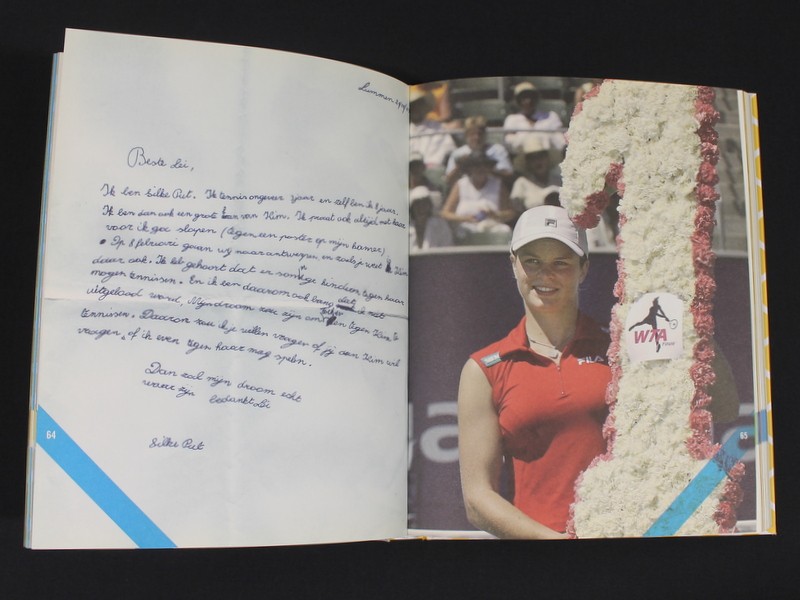 Lummen
Beste Lei,
Ik ben Silke Piet. Ik tennis ongeveer 3 jaar en zelf ben ik 8 jaar.
Ik ben dan ook een groot fan van Kim. Ik praat ook altijd met haar
voor ik ga slapen (tegen een poster op mijn kamer)
Op 8 februari gaan wij naar antwerpen en zoals je weet Kim
daar ook. Ik heb gehoort dat er somige kinderen tegen haar
mogen tennissen. En ik ben daarom ook bang dat ik niet
uitgelood word. Mijn droom zou zijn om tegen Kim te
tennissen. Daarom zou ik je willen vragen of jij aan Kim wil
vragen, of ik even tegen haar mag spelen.
Dan zal mijn droom echt
waar zijn bedankt Lei
Silke Piet
64
FILA
WTA
TOUR
65